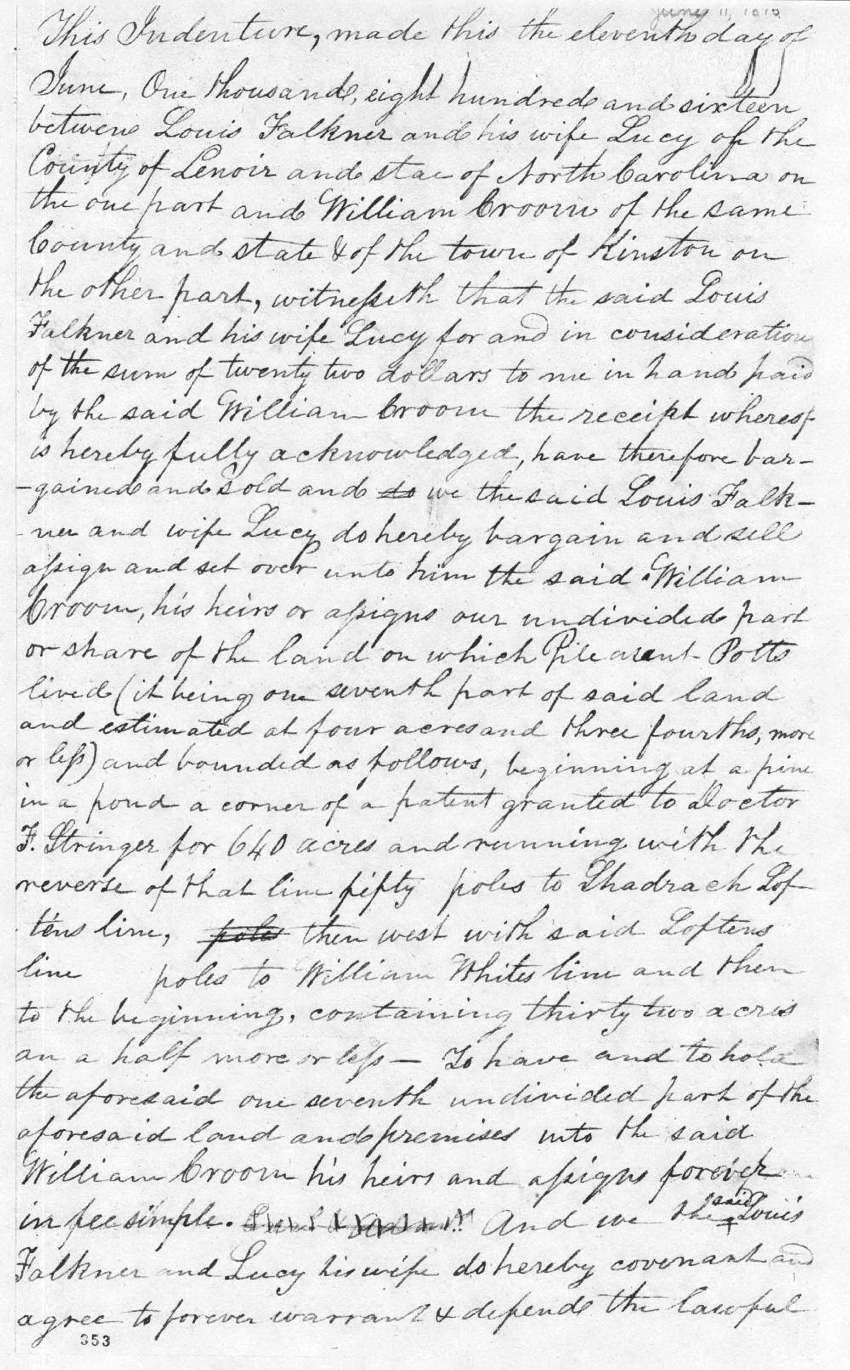 June 11, 1816
This Indenture, made this the eleventh day of
June, One thousand, eight hundred and sixteen
between Louis Falkner and his wife Lucy of the
County of Lenoir and stae of North Carolina on
the one part and William Croom of the same
County and state & of the town of Kinston on
the other part, witnesseth that the said Louis
Falkner and his wife Lucy for and in consideration
of the sum of twenty two dollars to me in hand paid
by the said William Croom the receipt whereof
is hereby fully acknowledged, have therefore bar-
-gained and sold and do we the said Louis Falk-
-ner and wife Lucy do hereby bargain and sell
assign and set over unto him the said William
Croom, his heirs or assigns our undivided part
or share of the land on which Pleasent Potts
lived (it being one seventh part of said land
and estimated at four acres and three fourths, more
or less) and bounded as follows, beginning at a pine
in a pond a corner of a patent granted to Doctor
F. Stringer for 640 acres and running with the
reverse of that line fifty poles to Shadrach Lof-
tens line, poles then west with said Loftens
line poles to William Whites line and then
to the beginning, containing thirty two acres
an a half more or less — To have and to hold
the aforesaid one seventh undivided part of the
aforesaid land and premises unto the said
William Croom his heirs and assigns forever
in fee simple. And we the said Louis
Falkner and Lucy his wife do hereby covenant and
agree to forever warrant & defend the lawful
353